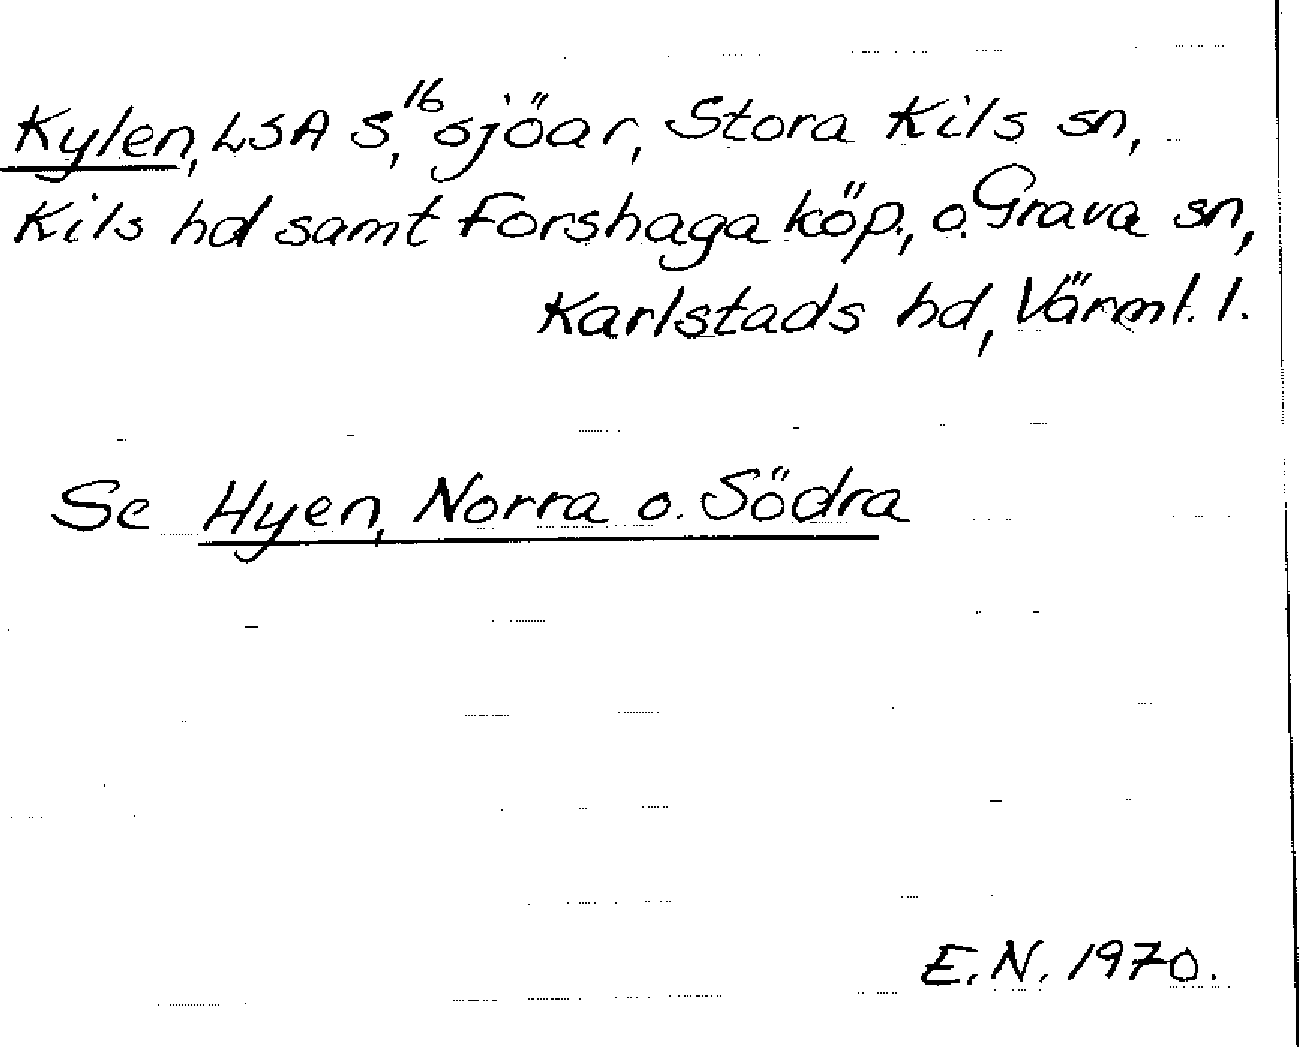 Kylen, LSA S,¹⁶ sjöar, Stora Kils sn,
Kils hd samt Forshaga köp., o. Grava sn,
Karlstads hd, Värml. l.
Se Hyen, Norra o. Södra
E.N. 1970.